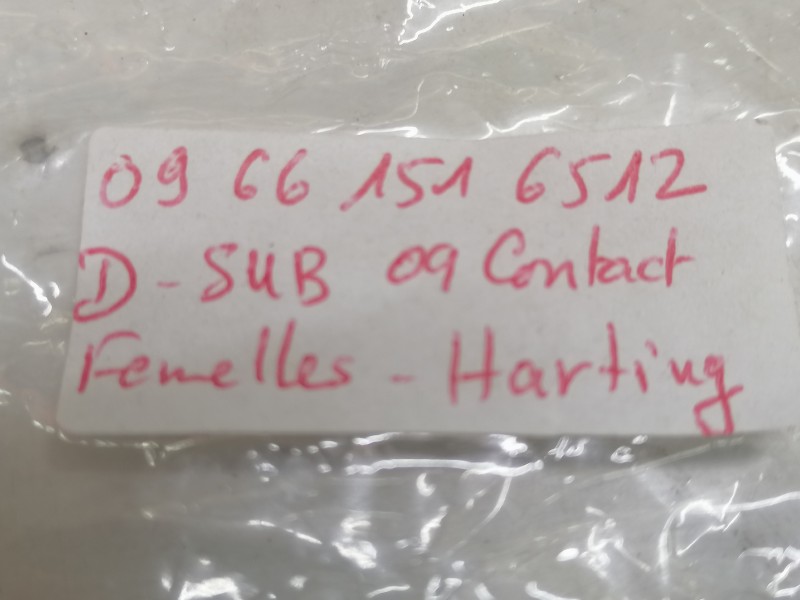 09 66 151 6512
D-SUB 09 Contact
Femelles - Harting